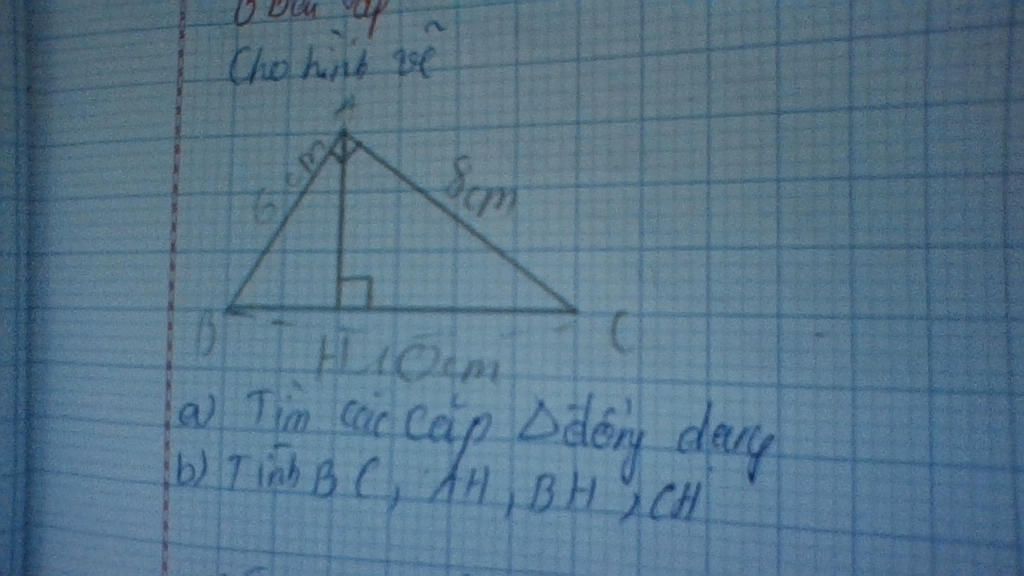 Cho hình vẽ
A
6 cm
8cm
B
C
H 10cm
a) Tìm các cặp Δ đồng dạng
b) Tính BC, AH, BH, CH